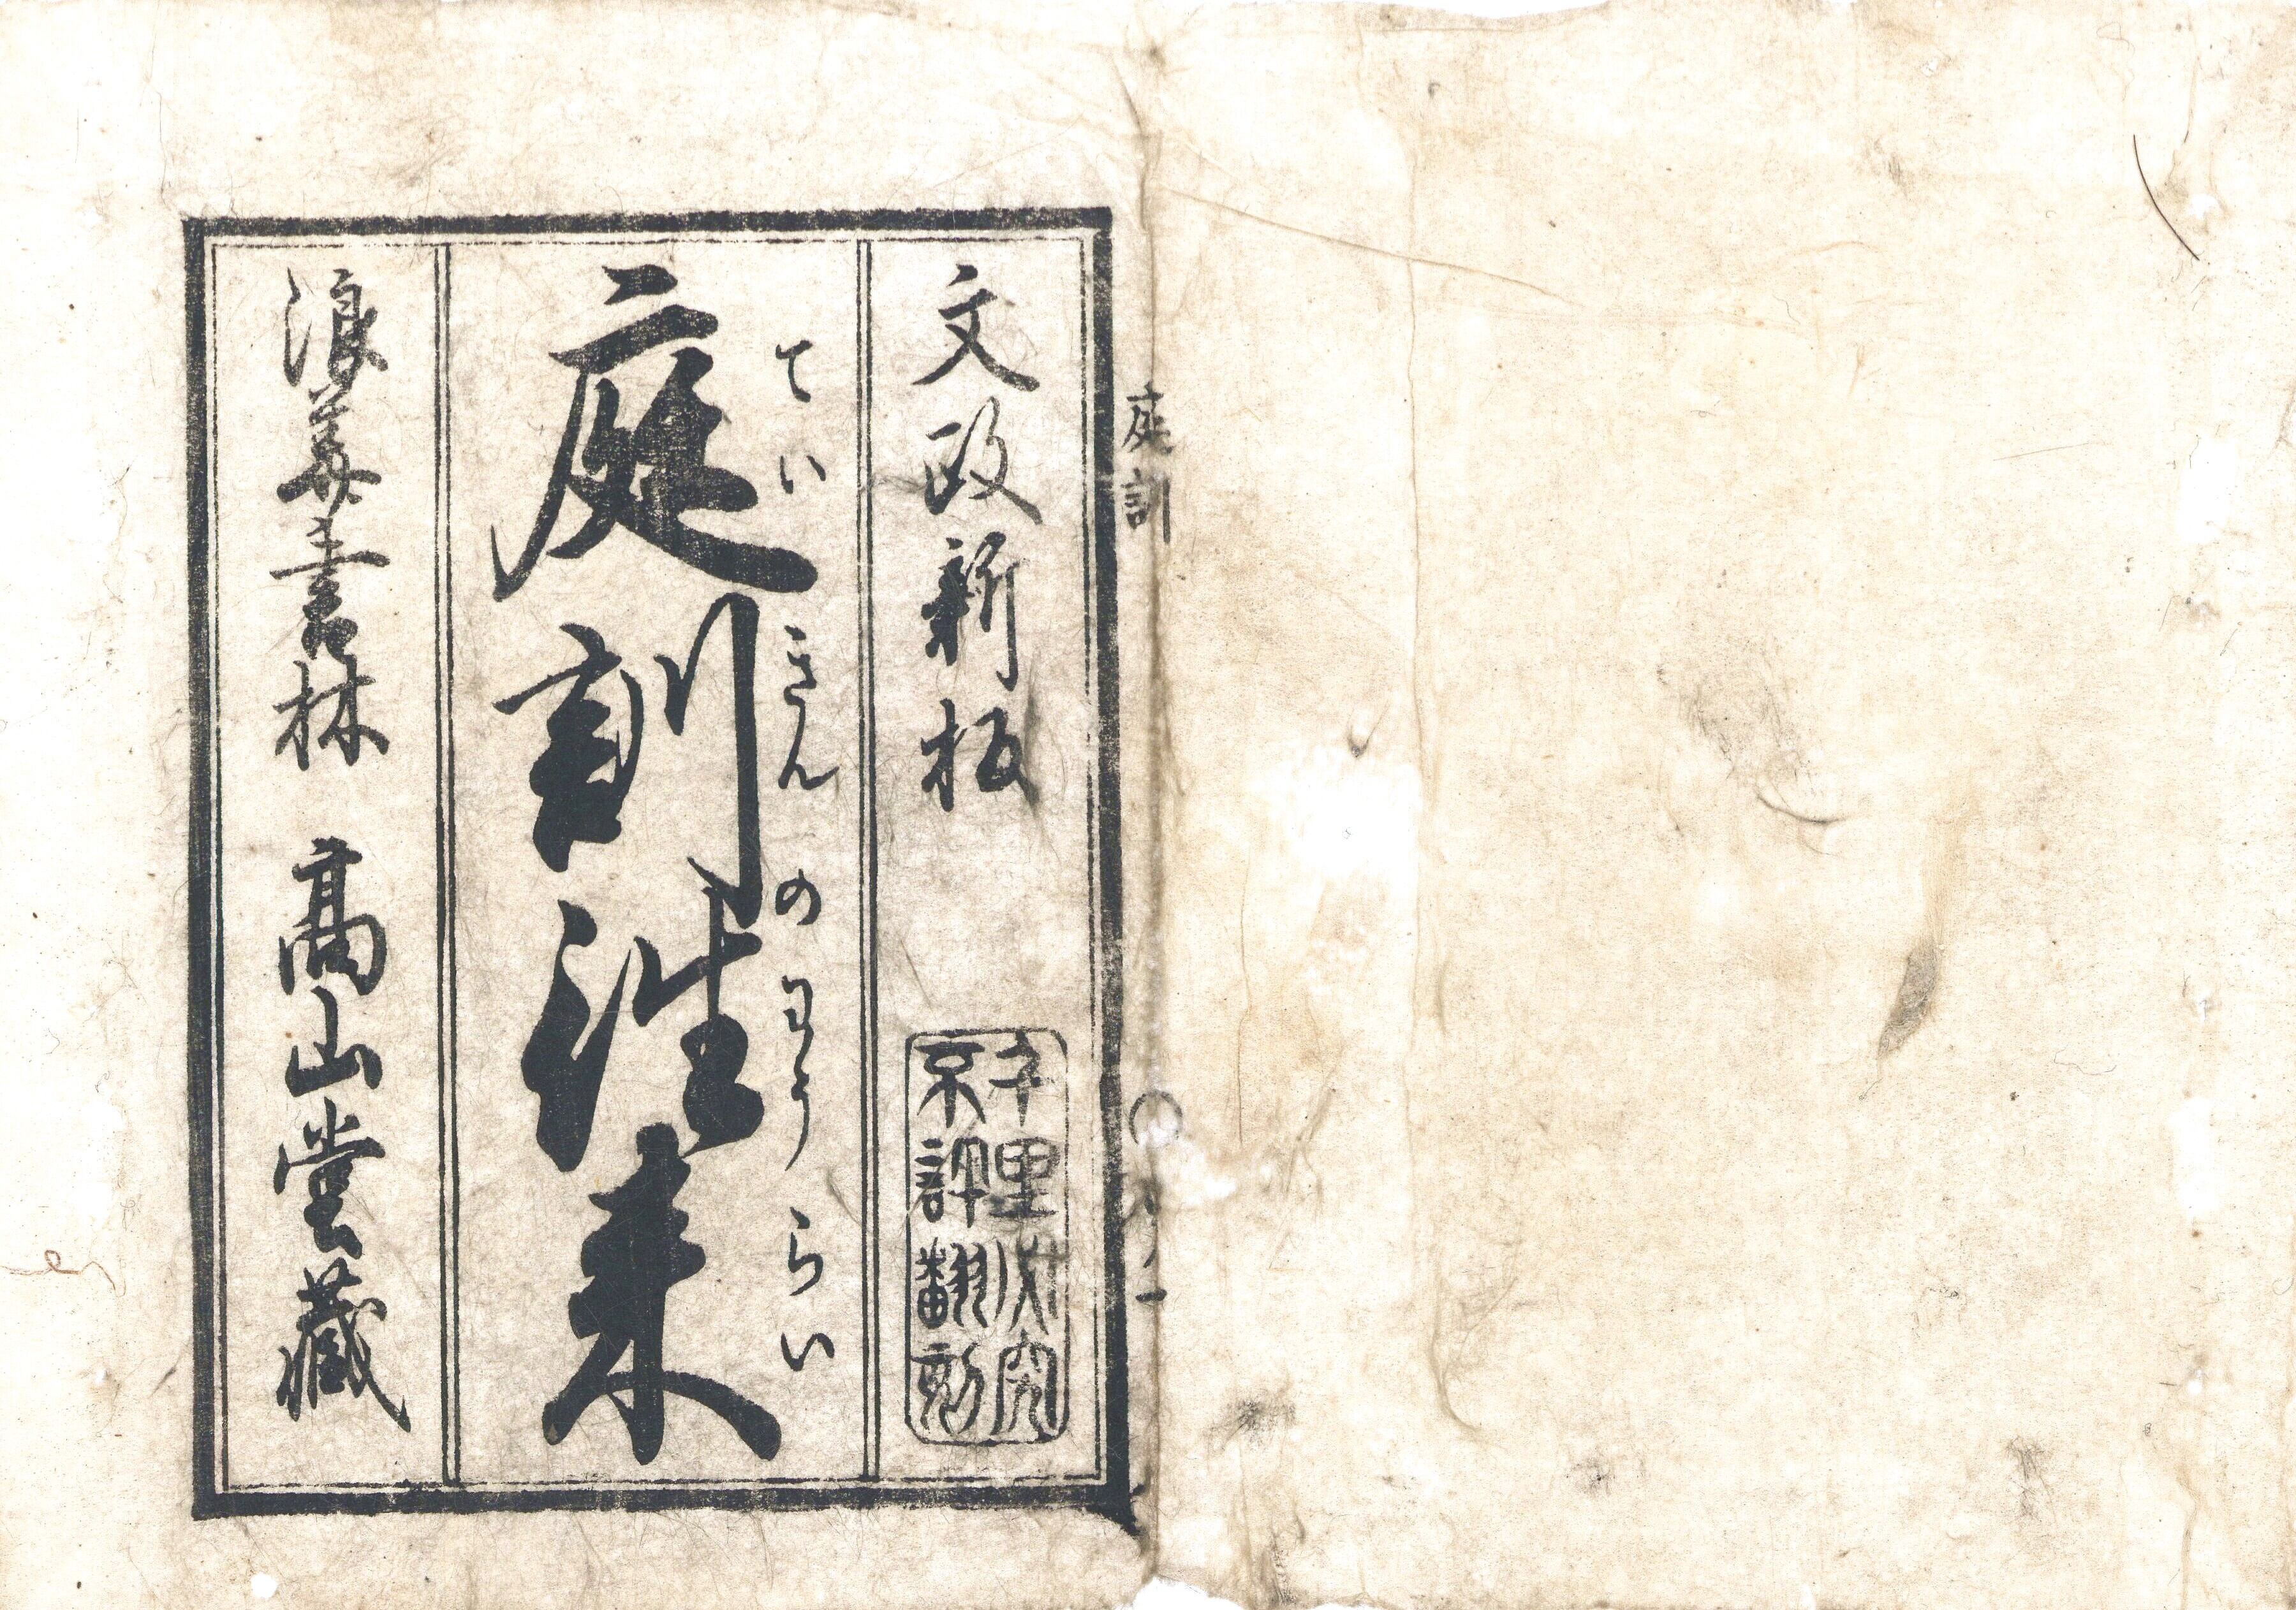 庭訓
文政新板
千里必究
不許翻刻
ていきんのわうらい
庭訓往来
浪華書林 髙山堂藏